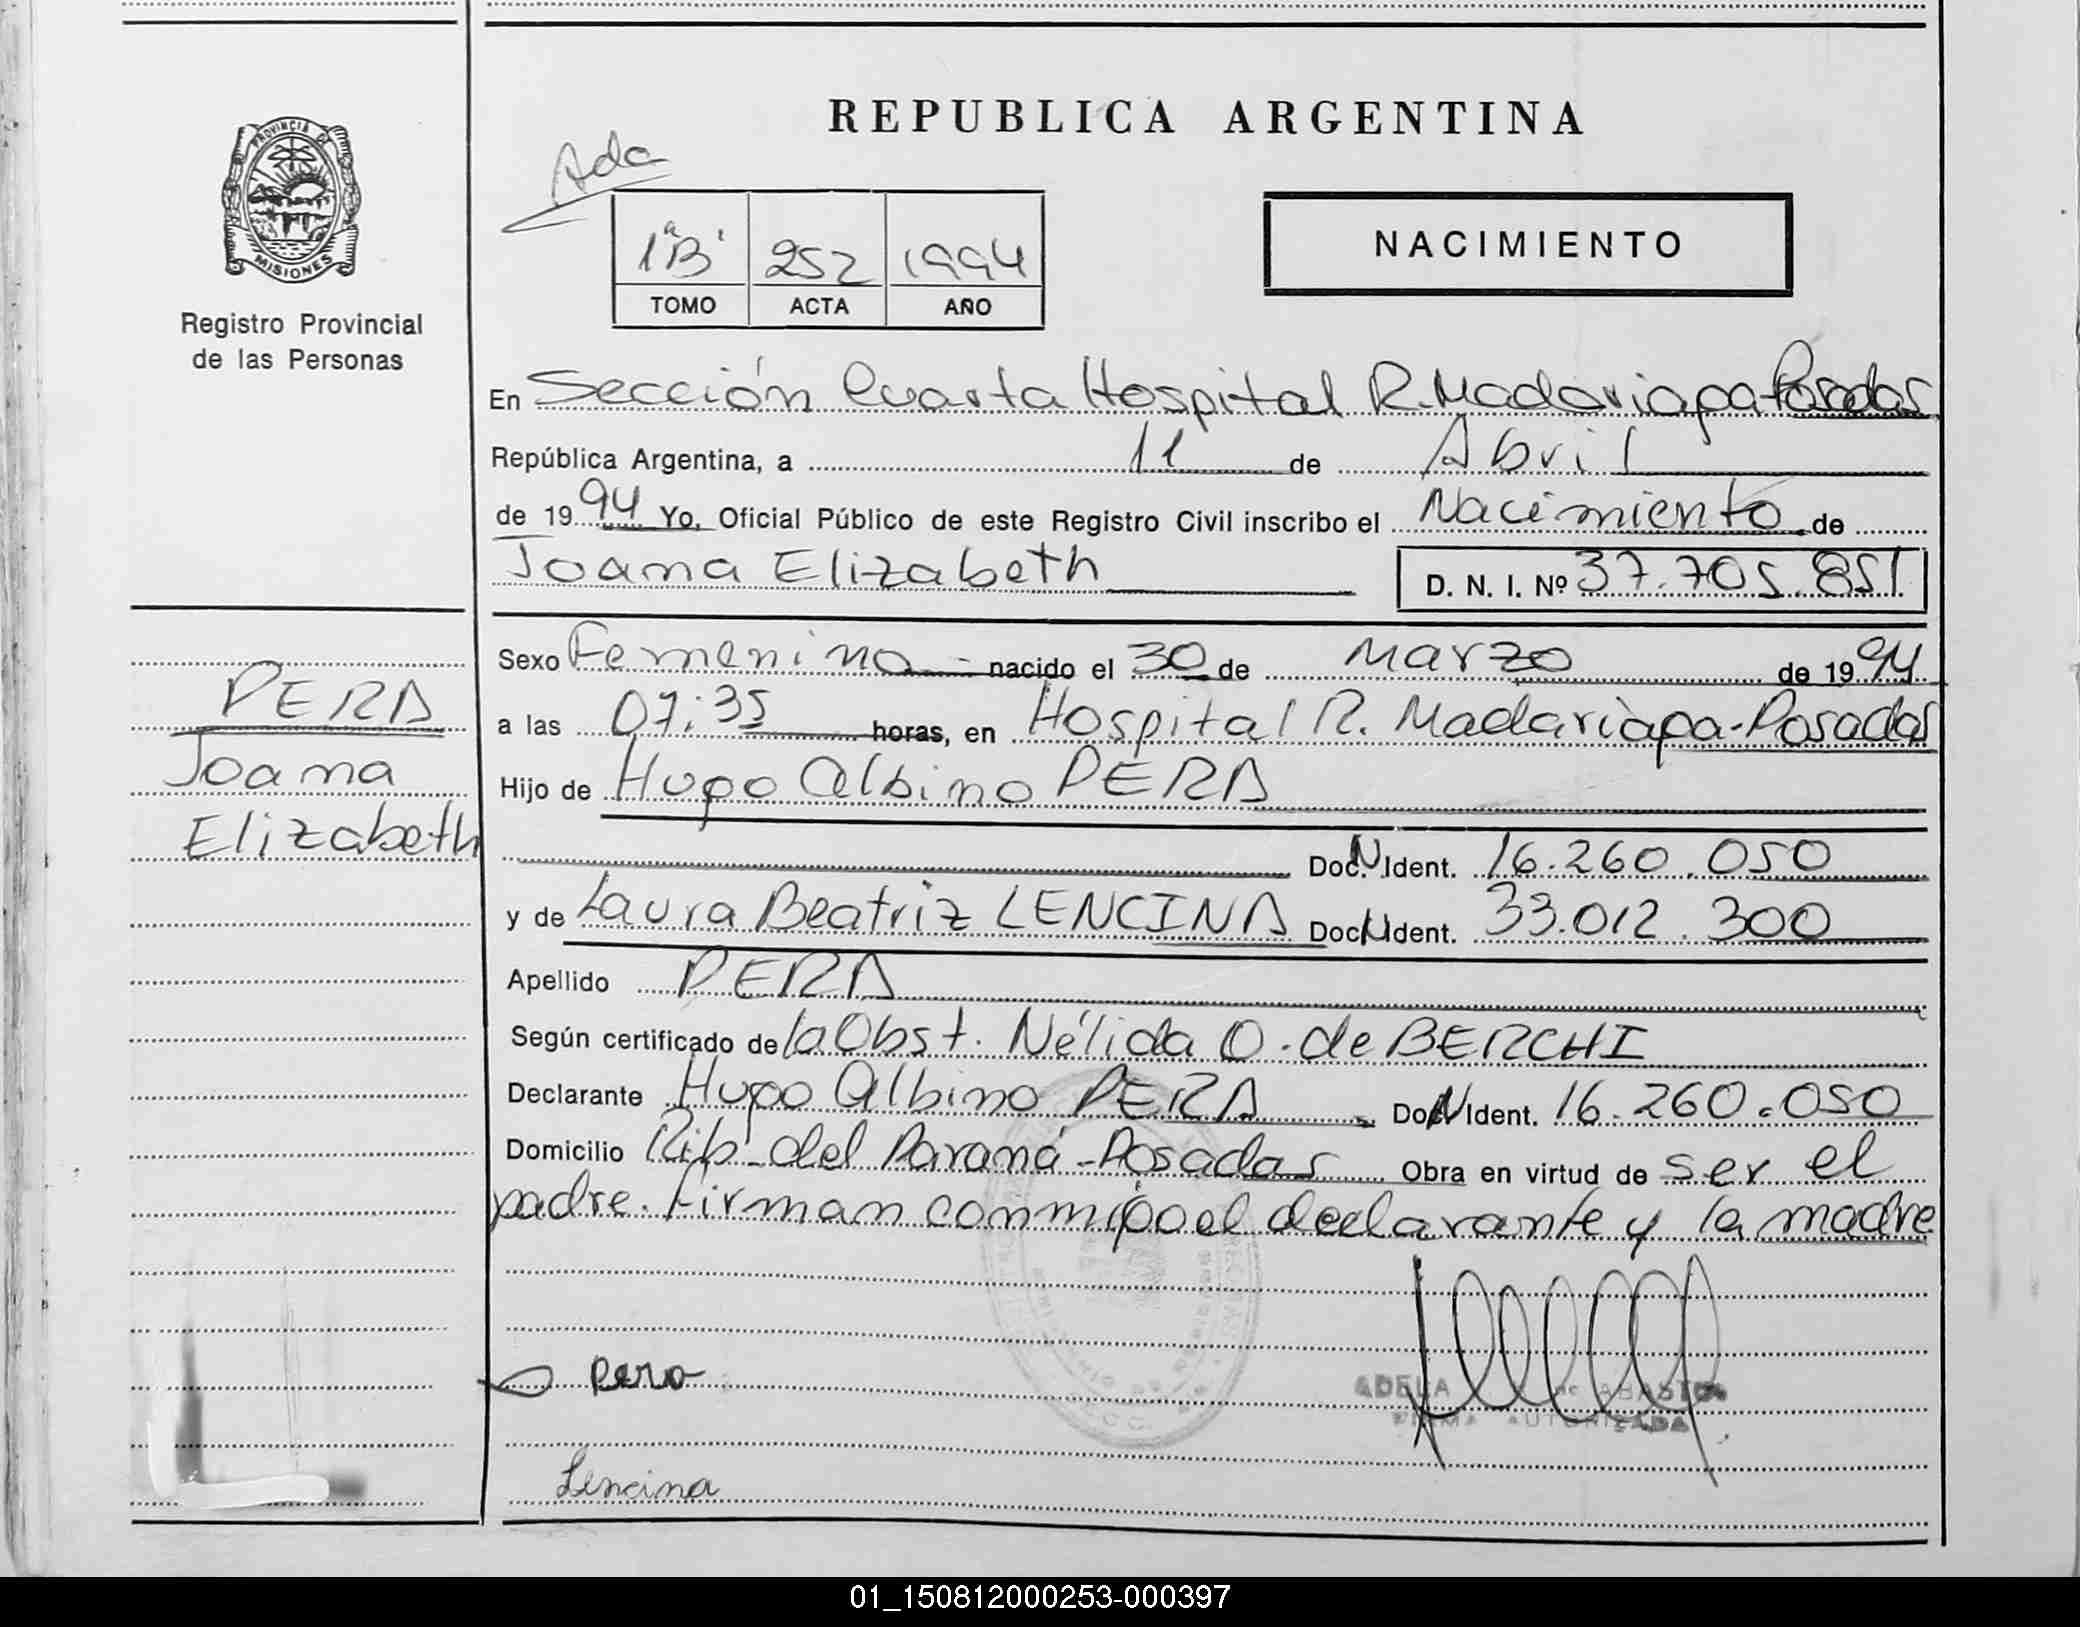 REPUBLICA ARGENTINA
PROVINCIA DE
MISIONES
Registro Provincial
de las Personas
Ada
1ª"B" 252 1994
TOMO ACTA AÑO
NACIMIENTO
En Sección Cuarta Hospital R. Madariaga-Posadas
República Argentina, a 11 de Abril
de 1994 Yo, Oficial Público de este Registro Civil inscribo el Nacimiento de
Joana Elizabeth D. N. I. Nº 37.705.851
Sexo Femenino nacido el 30 de Marzo de 1994
a las 07:35 horas, en Hospital R. Madariaga-Posadas
Hijo de Hugo Albino PERA
Doc.N.Ident. 16.260.050
y de Laura Beatriz LENCINA Doc.N.Ident. 33.012.300
Apellido PERA
Según certificado de la Obst. Nélida O. de BERCHI
Declarante Hugo Albino PERA Doc.N.Ident. 16.260.050
Domicilio Rib. del Paraná-Posadas Obra en virtud de ser el
padre. Firman conmigo el declarante y la madre
PERA
Joana
Elizabeth
Pera
ADELA DE ABASTO
FIRMA AUTORIZADA
Lencina
01_150812000253-000397